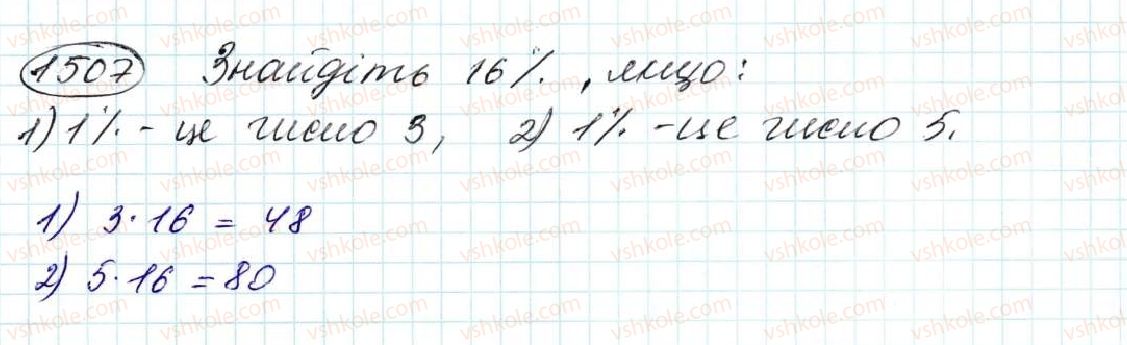 1507 Знайдіть 16%, якщо:
1) 1% - це число 3, 2) 1% - це число 5.
1) 3·16 = 48
2) 5·16 = 80